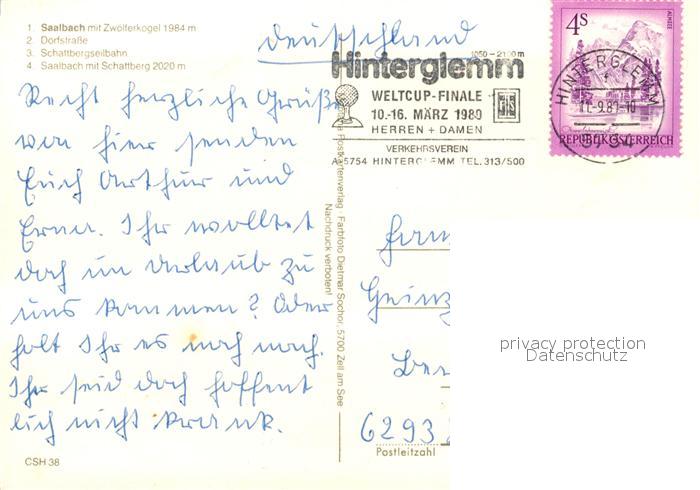 1. Saalbach mit Zwölferkogel 1984 m
2. Dorfstraße
3. Schattbergseilbahn
4. Saalbach mit Schattberg 2020 m
Deutschland
1050 - 2100 m
Hinterglemm
WELTCUP-FINALE
10.-16. MÄRZ 1980
HERREN + DAMEN
FIS
VERKEHRSVEREIN
A-5754 HINTERGLEMM TEL. 313/500
4S
ALMSEE
HINTERGLEMM
5754
REPUBLIK ÖSTERREICH
Recht herzliche Grüße
von hier senden
Euch Arthur und
Erna. Ihr wolltet
doch im Urlaub zu
uns kommen? Oder
holt Ihr es noch nach.
Ihr seid doch hoffent
lich nicht krank.
Postkartenverlag · Farbfoto Dietmar Sochor, 5700 Zell am See
Nachdruck verboten!
Fam
Heinz
6293
Postleitzahl
CSH 38
privacy protection
Datenschutz